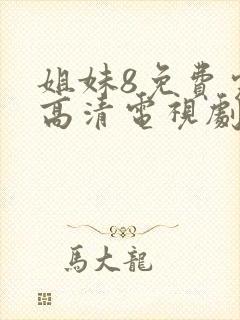 姐妹8免費
高清電視劇
馬大龍